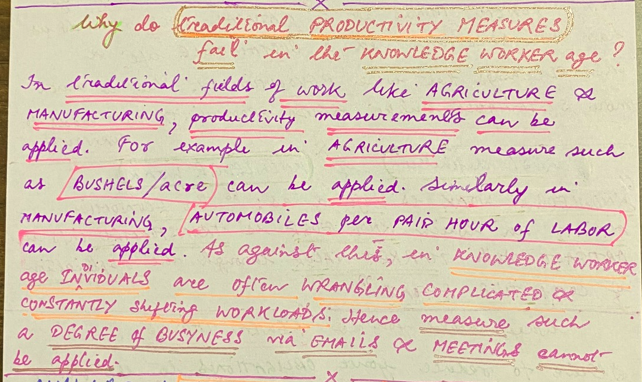 Why do traditional PRODUCTIVITY MEASURES
fail in the KNOWLEDGE WORKER age?
In traditional fields of work like AGRICULTURE &
MANUFACTURING, productivity measurements can be
applied. For example in AGRICULTURE measure such
as BUSHELS/acre can be applied. Similarly in
MANUFACTURING, AUTOMOBILES per PAID HOUR of LABOR
can be applied. As against this, in KNOWLEDGE WORKER
age INDIVIDUALS are often WRANGLING COMPLICATED &
CONSTANTLY shifting WORKLOADS. Hence measure such
a DEGREE of BUSYNESS via EMAILS & MEETINGS cannot
be applied.